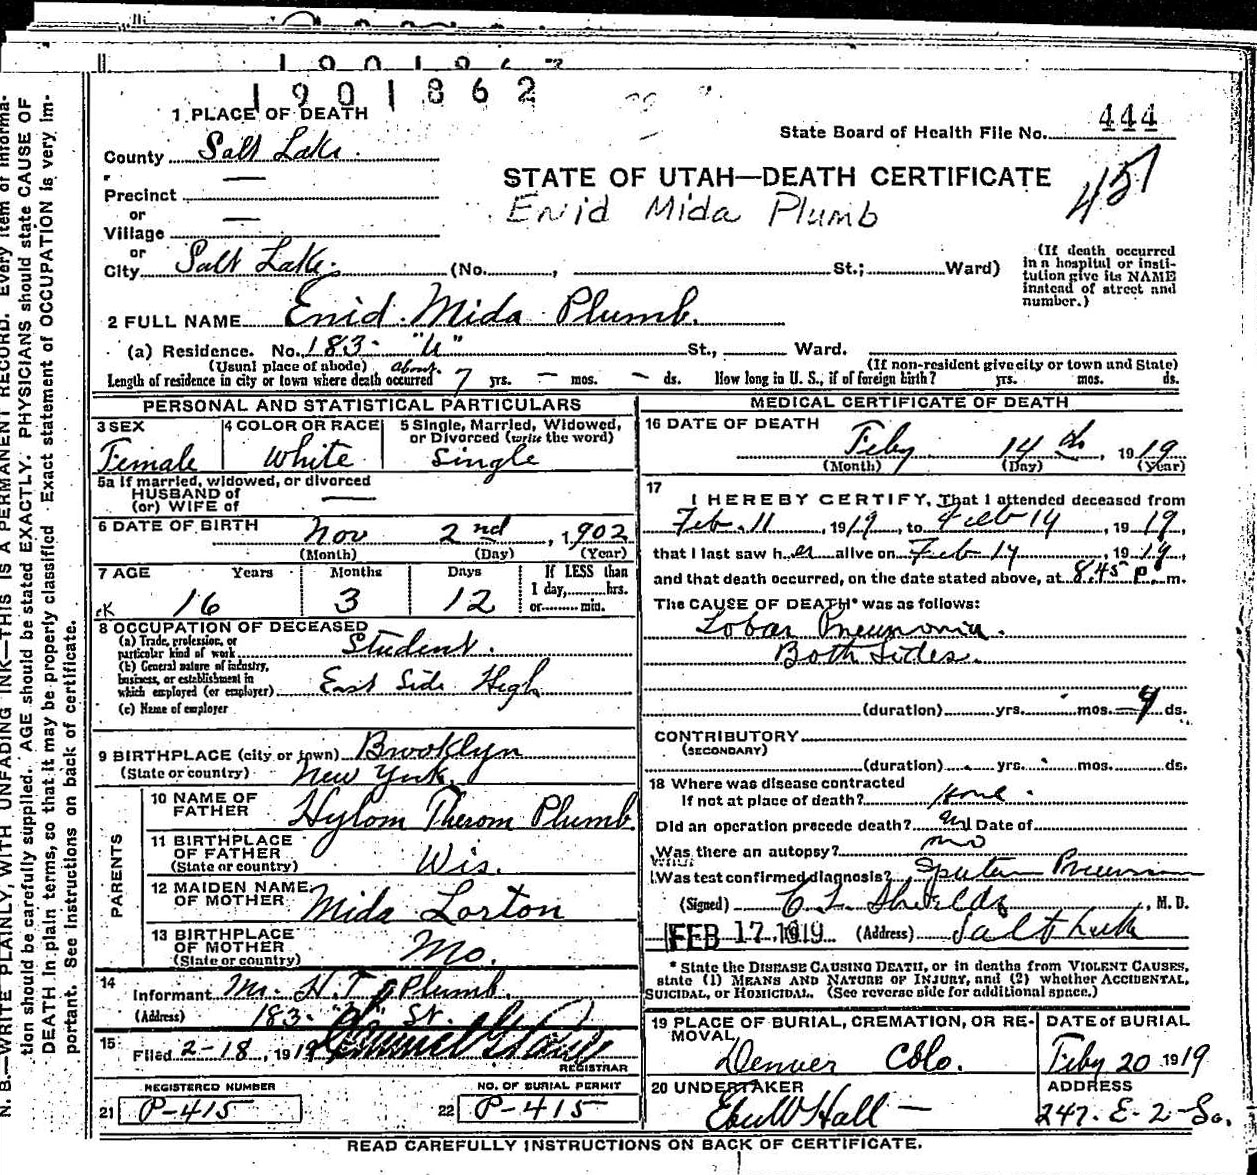 1901862
1 PLACE OF DEATH
State Board of Health File No. 444
County Salt Lake.
451
STATE OF UTAH—DEATH CERTIFICATE
Precinct —
Enid Mida Plumb
or
Village —
or
City Salt Lake. (No. , St.; Ward)
(If death occurred in a hospital or institution give its NAME instead of street and number.)
2 FULL NAME Enid Mida Plumb.
(a) Residence. No. 183- "U" St., Ward.
(Usual place of abode) (If non-resident give city or town and State)
Length of residence in city or town where death occurred about 7 yrs. — mos. — ds. How long in U. S., if of foreign birth? yrs. mos. ds.
PERSONAL AND STATISTICAL PARTICULARS
3 SEX Female
4 COLOR OR RACE White
5 Single, Married, Widowed, or Divorced (write the word) Single
5a If married, widowed, or divorced
HUSBAND of
(or) WIFE of —
6 DATE OF BIRTH Nov 2nd, 1902
(Month) (Day) (Year)
7 AGE Years Months Days If LESS than
1 day, hrs.
or min.
16 3 12
8 OCCUPATION OF DECEASED
(a) Trade, profession, or particular kind of work Student.
(b) General nature of industry, business, or establishment in which employed (or employer) East Side High
(c) Name of employer
9 BIRTHPLACE (city or town) Brooklyn
(State or country) New York.
PARENTS
10 NAME OF FATHER Hylom Therom Plumb
11 BIRTHPLACE OF FATHER (State or country) Wis.
12 MAIDEN NAME OF MOTHER Mida Lorton
13 BIRTHPLACE OF MOTHER (State or country) Mo.
14 Informant Mr. H. T. Plumb.
(Address) 183- St.
15 Filed 2-18, 1919
REGISTRAR
REGISTERED NUMBER
21 P-415
NO. OF BURIAL PERMIT
22 P-415
MEDICAL CERTIFICATE OF DEATH
16 DATE OF DEATH Feby 14th, 1919
(Month) (Day) (Year)
17 I HEREBY CERTIFY, That I attended deceased from
Feb. 11, 1919, to Feb 14, 1919,
that I last saw her alive on Feb 14, 1919,
and that death occurred, on the date stated above, at 8.45 P. m.
The CAUSE OF DEATH* was as follows:
Lobar Pneumonia.
Both Sides.
(duration) yrs. mos. 4 ds.
CONTRIBUTORY
(SECONDARY)
(duration) yrs. mos. ds.
18 Where was disease contracted
If not at place of death? Home.
Did an operation precede death? Date of
Was there an autopsy? no
What
Was test confirmed diagnosis? Sputum
(Signed) C. L. Shields, M. D.
FEB 17 1919 (Address) Salt Lake
* State the DISEASE CAUSING DEATH, or in deaths from VIOLENT CAUSES,
state (1) MEANS AND NATURE OF INJURY, and (2) whether ACCIDENTAL,
SUICIDAL, or HOMICIDAL. (See reverse side for additional space.)
19 PLACE OF BURIAL, CREMATION, OR REMOVAL
Denver Colo.
DATE of BURIAL
Feby 20 1919
20 UNDERTAKER
Eber W Hall —
ADDRESS
247. E-2-So.
READ CAREFULLY INSTRUCTIONS ON BACK OF CERTIFICATE.
N. B.—WRITE PLAINLY, WITH UNFADING INK—THIS IS A PERMANENT RECORD. Every item of informa-
tion should be carefully supplied. AGE should be stated EXACTLY. PHYSICIANS should state CAUSE OF
DEATH in plain terms, so that it may be properly classified. Exact statement of OCCUPATION is very im-
portant. See instructions on back of certificate.